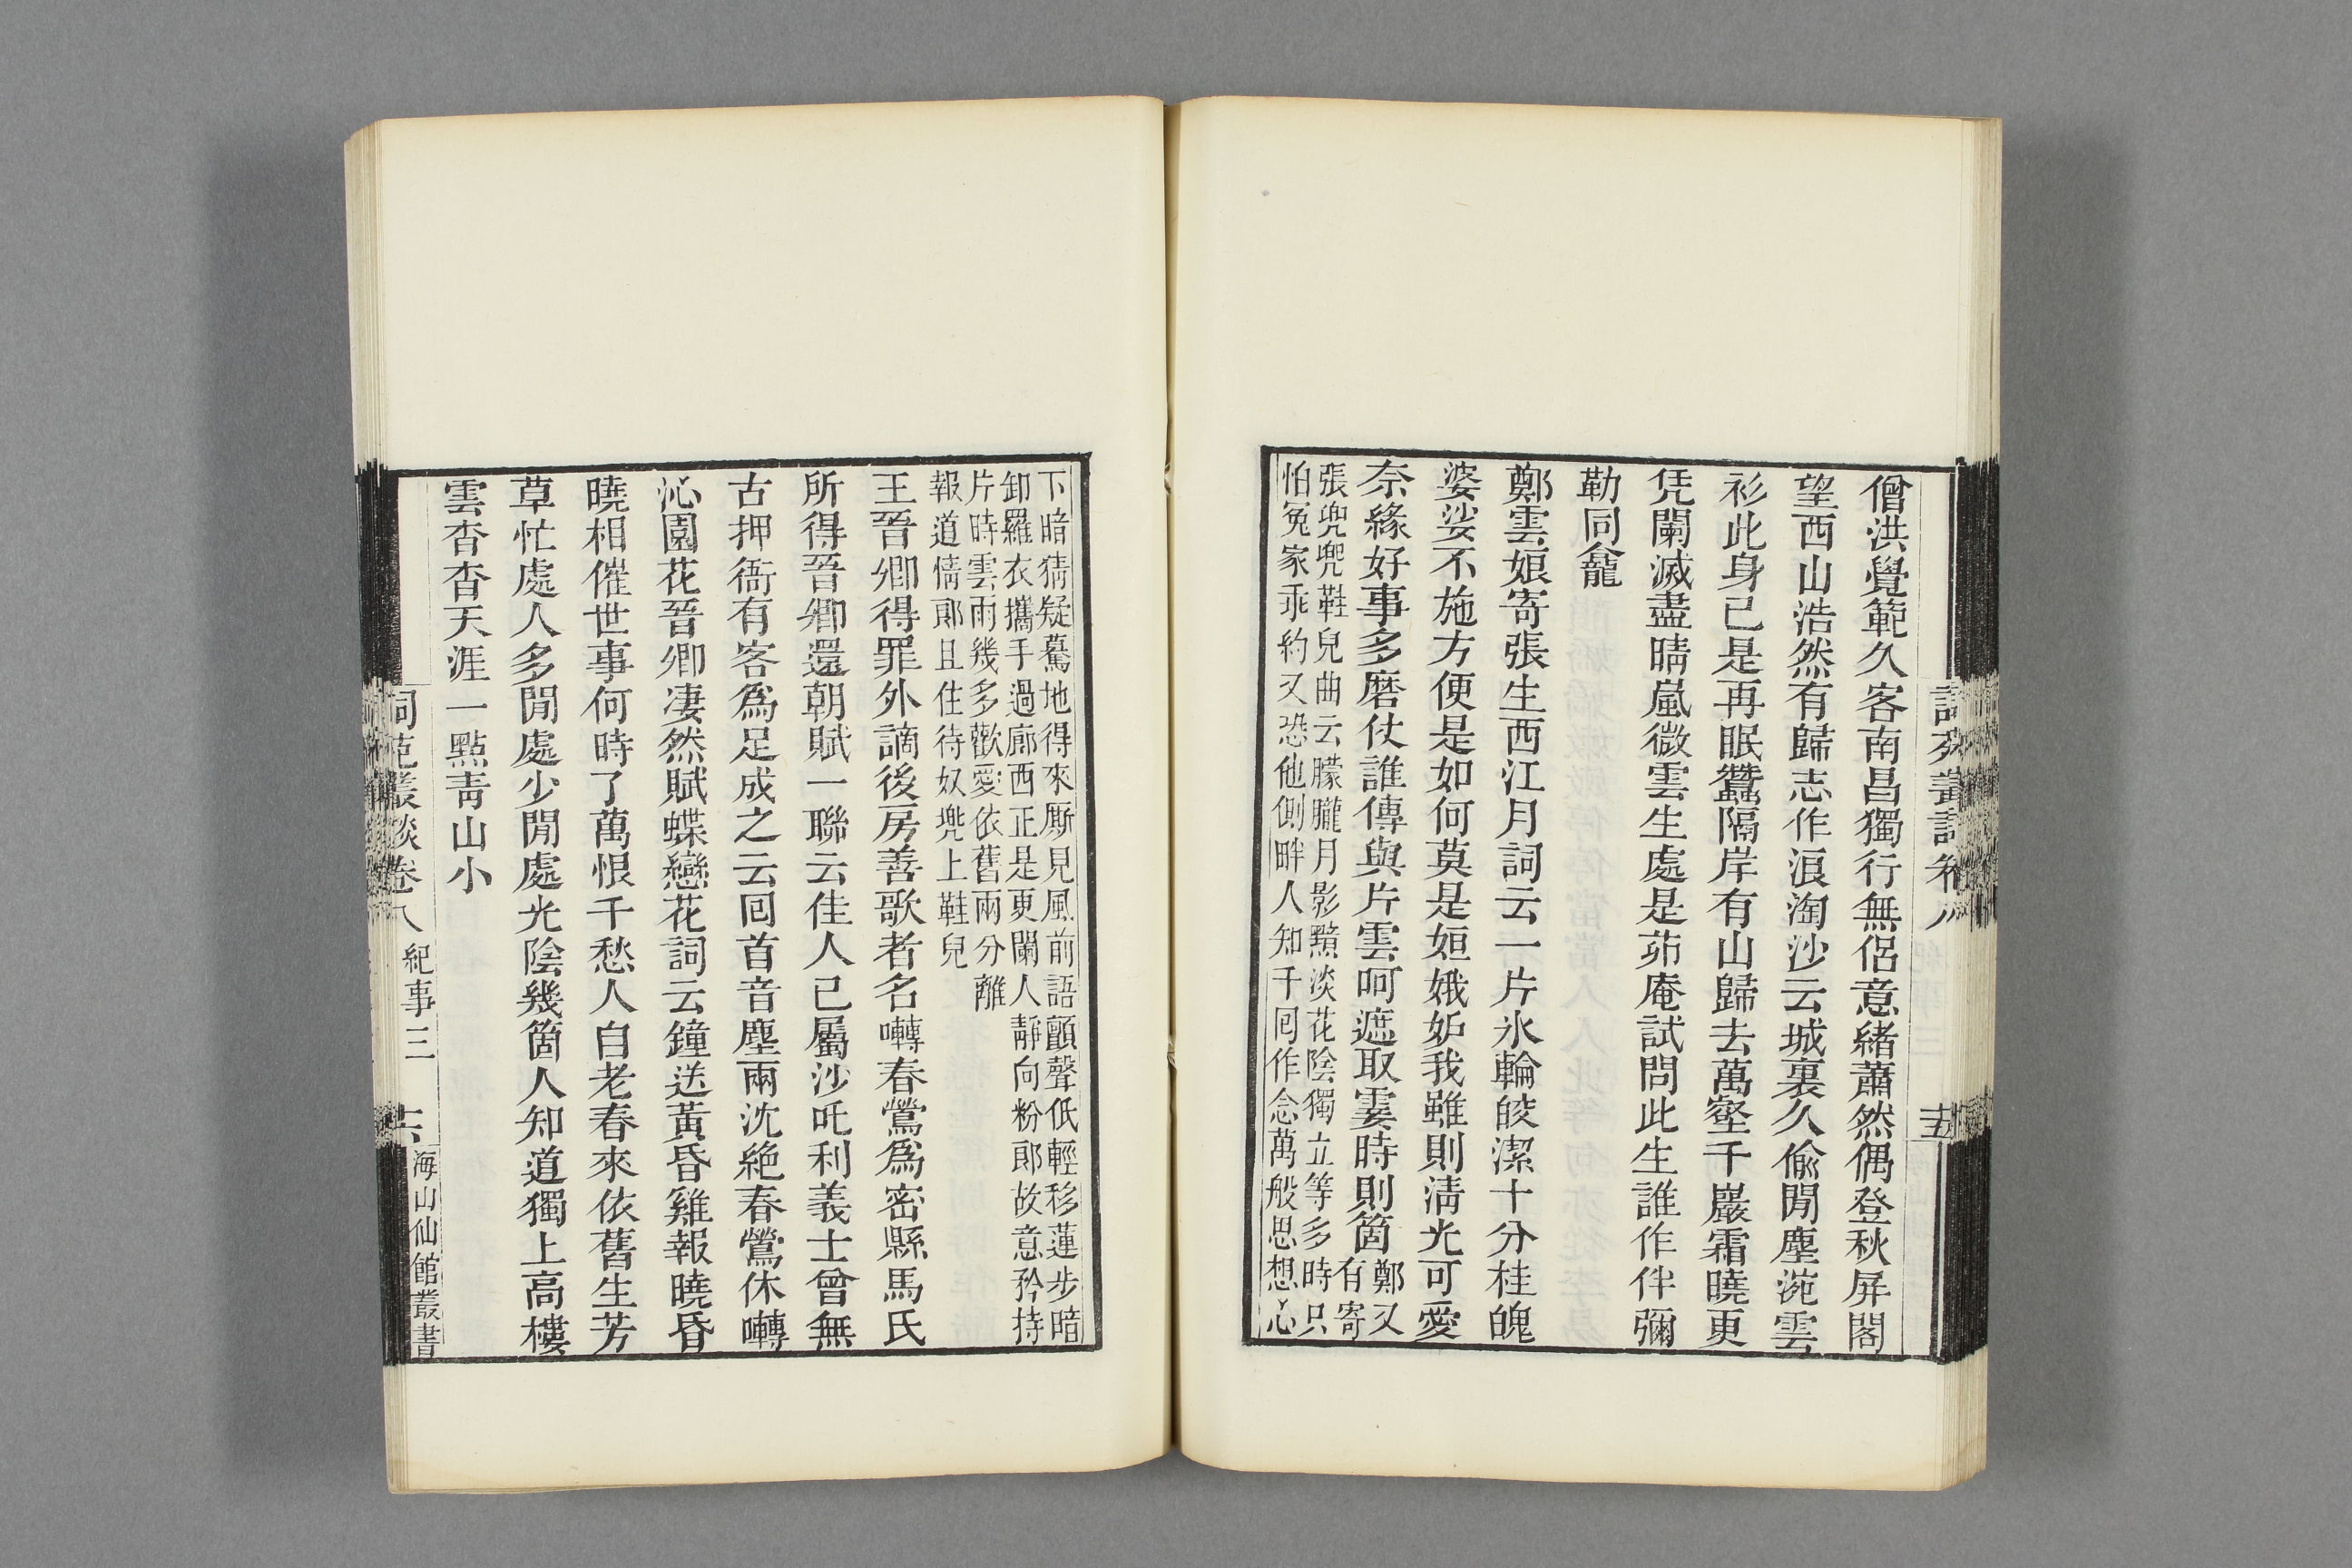 詞苑叢談卷八
十五
僧洪覺範久客南昌獨行無侶意緒蕭然偶登秋屏閣
望西山浩然有歸志作浪淘沙云城裏久偷閒塵涴雲
衫此身已是再眠蠶隔岸有山歸去萬壑千巖霜曉更
凭闌滅盡晴嵐微雲生處是茆庵試問此生誰作伴彌
勒同龕
鄭雲娘寄張生西江月詞云一片氷輪皎潔十分桂魄
婆娑不施方便是如何莫是姮娥妒我雖則淸光可愛
奈緣好事多磨仗誰傳與片雲呵遮取霎時則箇
鄭又
有寄
張兜兜鞋兒曲云朦朧月影黯淡花陰獨立等多時只
怕冤家乖約又恐他側畔人知千囘作念萬般思想心
下暗猜疑驀地得來厮見風前語顫聲低輕移蓮步暗
卸羅衣攜手過廊西正是更闌人靜向粉郞故意矜持
片時雲雨幾多歡愛依舊兩分離
報道情郞且住待奴兠上鞋兒
王晉卿得罪外謫後房善歌者名囀春鶯爲密縣馬氏
所得晉卿還朝賦一聯云佳人已屬沙吒利義士曾無
古押衙有客爲足成之云囘首音塵兩沈絶春鶯休囀
沁園花晉卿凄然賦蝶戀花詞云鐘送黃昏雞報曉昏
曉相催世事何時了萬恨千愁人自老春來依舊生芳
草忙處人多閒處少閒處光陰幾箇人知道獨上高樓
雲杳杳天涯一點靑山小
詞苑叢談卷八
紀事三
十六
海山仙館叢書